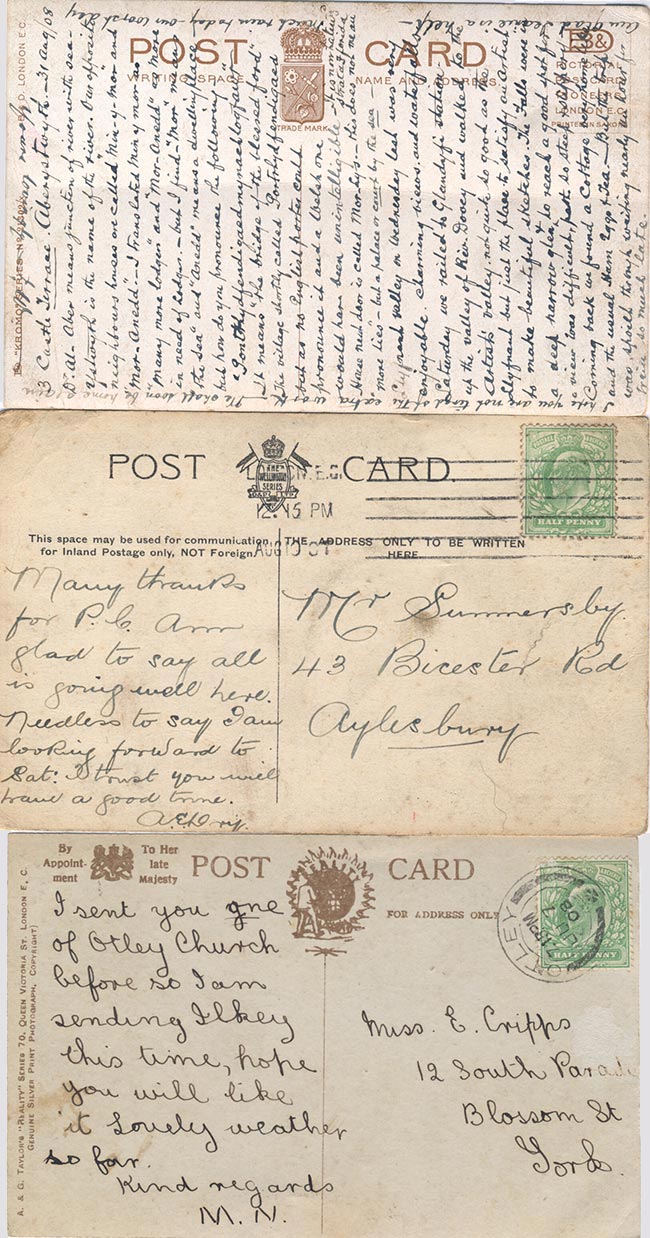 much rain today — our worst day
am glad Jennie is a help —
POST CARD
WRITING SPACE
NAME AND ADDRESS
TRADE MARK
PICTORIAL
POST CARD
LONDON E.C.
"KROMO" SERIES No
B D. LONDON E.C.
3 Castle Terrace, Aberystwyth — 31 Aug /08
Dr Al- Aber means junction of river with sea
Ystwyth is the name of the river. Our opposite
neighbours houses are called "Min-y-mor and
Mor-Anedd — I translated Min y mor as
"Many more lodgers" and "Mor-Anedd" as more
in need of lodgers — but I find "Mor" means
the sea" and "Anedd" means a dwelling place
but how do you pronounce the following
It means "The bridge of the blessed ford".
The village shortly called Pontrhydfendigaed
but as no English porter could
pronounce it and a Welsh one
would have been unintelligible it is now called
Strata Florida
House next door is called Mor Lys — this does not mean
"more lies" — but a palace or court by the sea —
Llyfnant valley on Wednesday last was most
enjoyable. Charming views, and waterfalls
Saturday we railed to Glandyfi station
up the valley of Riv. Dovey and walked to the
Artists valley, not quite so good as the
Llyfnant but just the place to satisfy an Artist
to make beautiful sketches. The Falls were in
a deep narrow glen, & to reach a good spot for
a view was difficult, path so steep & slippery
Coming back we found a Cottage welcome
and the usual Ham Eggs & Tea — But the day
was spoilt through waiting nearly an hour for
train so much late.
hope you are not tired of the extra work
We shall soon be home again
POST CARD.
THE WELLINGTON SERIES
LONDON. E.C.
12.15 PM
AUG 19 07
HALF PENNY
This space may be used for communication
for Inland Postage only, NOT Foreign.
THE ADDRESS ONLY TO BE WRITTEN
HERE
Many thanks
for P.C. Am
glad to say all
is going well here.
Needless to say I am
looking forward to
Sat: I trust you will
have a good time.
Mr Summersby.
43 Bicester Rd
Aylesbury
By Appoint-ment
To Her late Majesty
POST CARD
FOR ADDRESS ONLY
OTLEY
HALF PENNY
A. & G. TAYLOR'S "REALITY" SERIES 70, QUEEN VICTORIA ST. LONDON E.C.
GENUINE SILVER PRINT PHOTOGRAPH, COPYRIGHT)
I sent you one
of Otley Church
before so I am
sending Ilkey
this time, hope
you will like
it Lovely weather
so far.
Kind regards
M. N.
Miss. E. Cripps
12 South Parade
Blossom St
York.